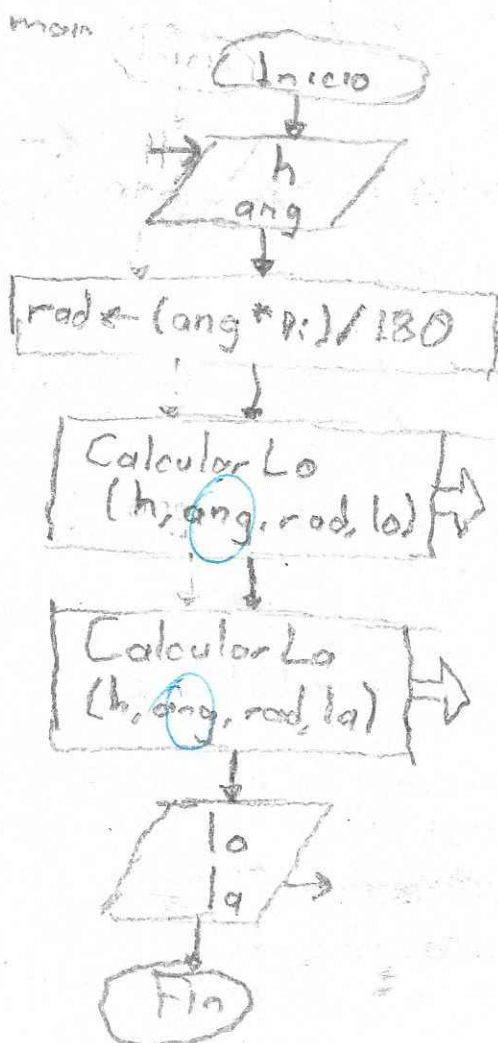 main
Inicio
h
ang
rad ← (ang * Pi) / 180
Calcular Lo
(h, ang, rad, lo)
Calcular La
(h, ang, rad, la)
lo
la
Fin